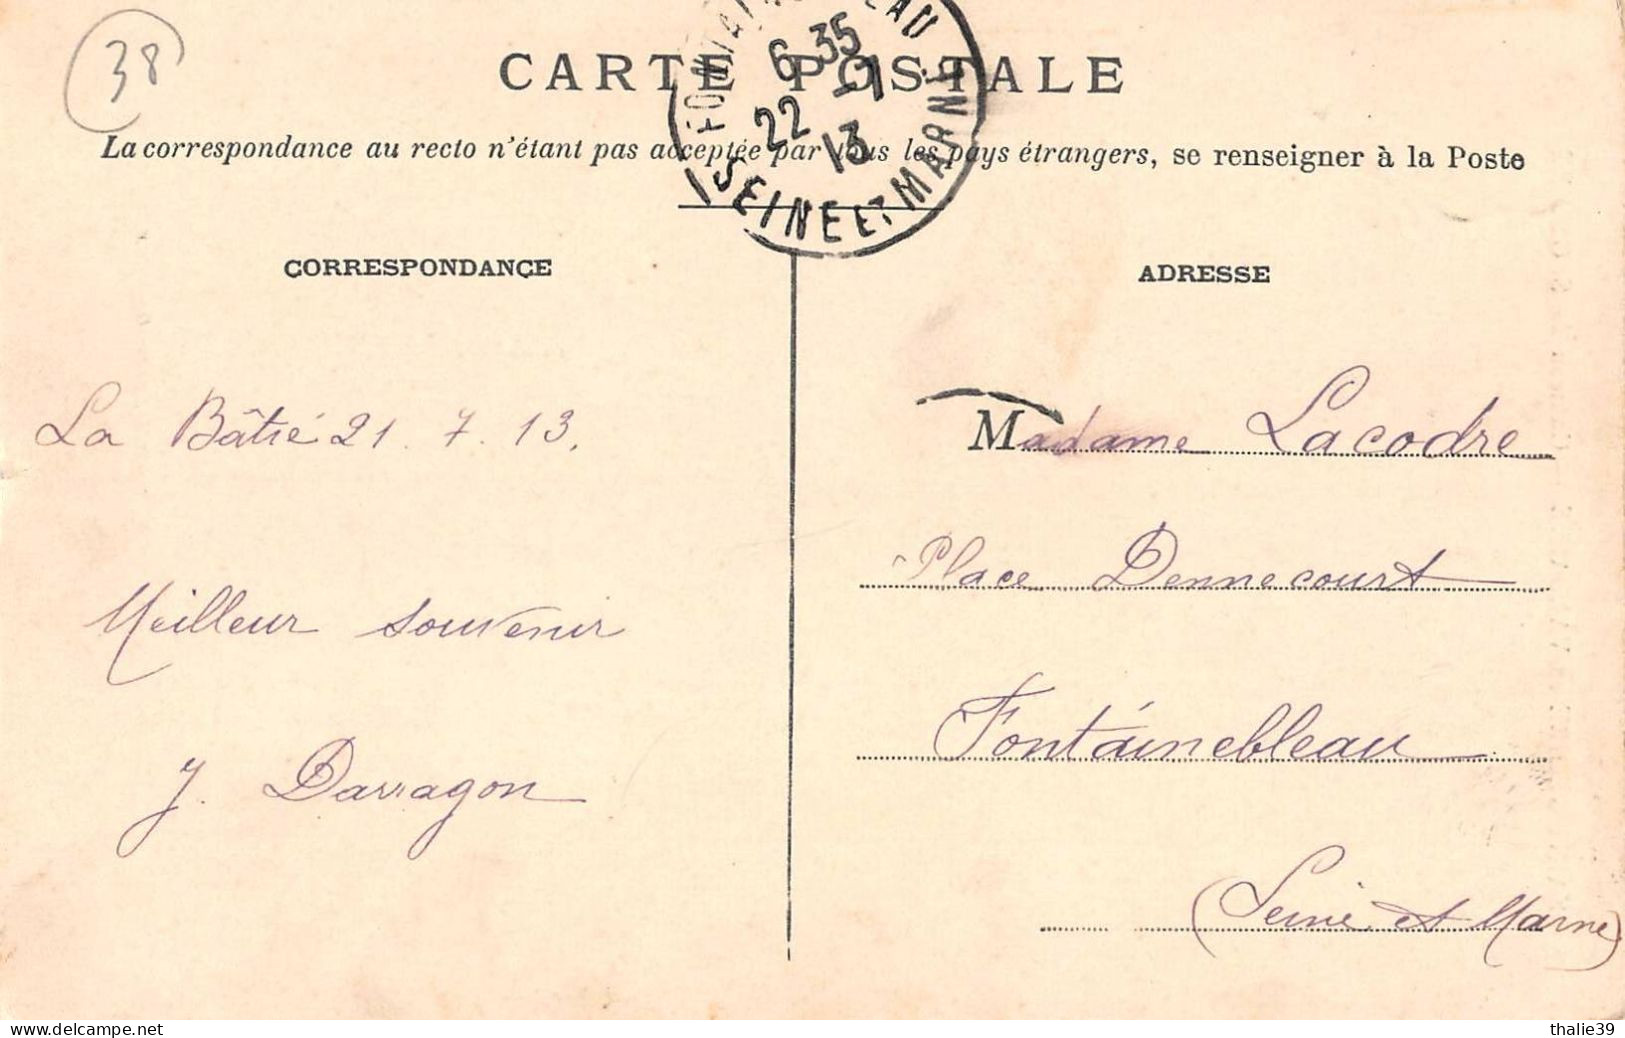 38
CARTE POSTALE
FONTAINEBLEAU
6 35
22 -7
13
SEINE ET MARNE
La correspondance au recto n'étant pas acceptée par tous les pays étrangers, se renseigner à la Poste
CORRESPONDANCE
La Bâtie 21. 7. 13.
Meilleur souvenir
J. Darragon
ADRESSE
Madame Lacodre
Place Dennecourt
Fontainebleau
(Seine et Marne)
delcampe.net
thalie39